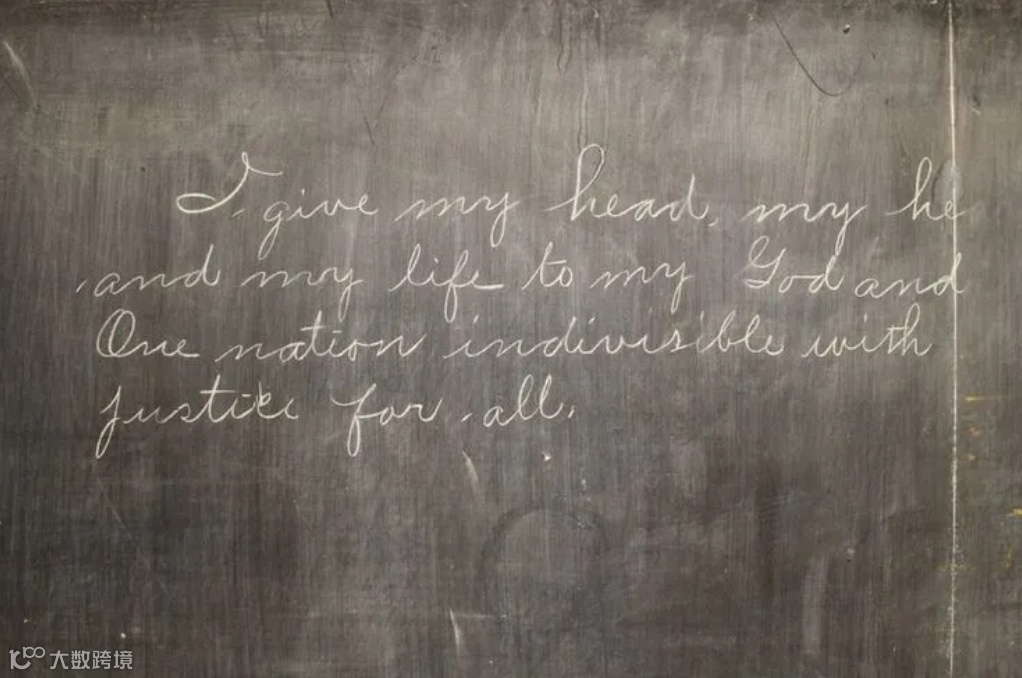 I give my head, my he
and my life to my God and
One nation indivisible with
justice for all.
大数跨境